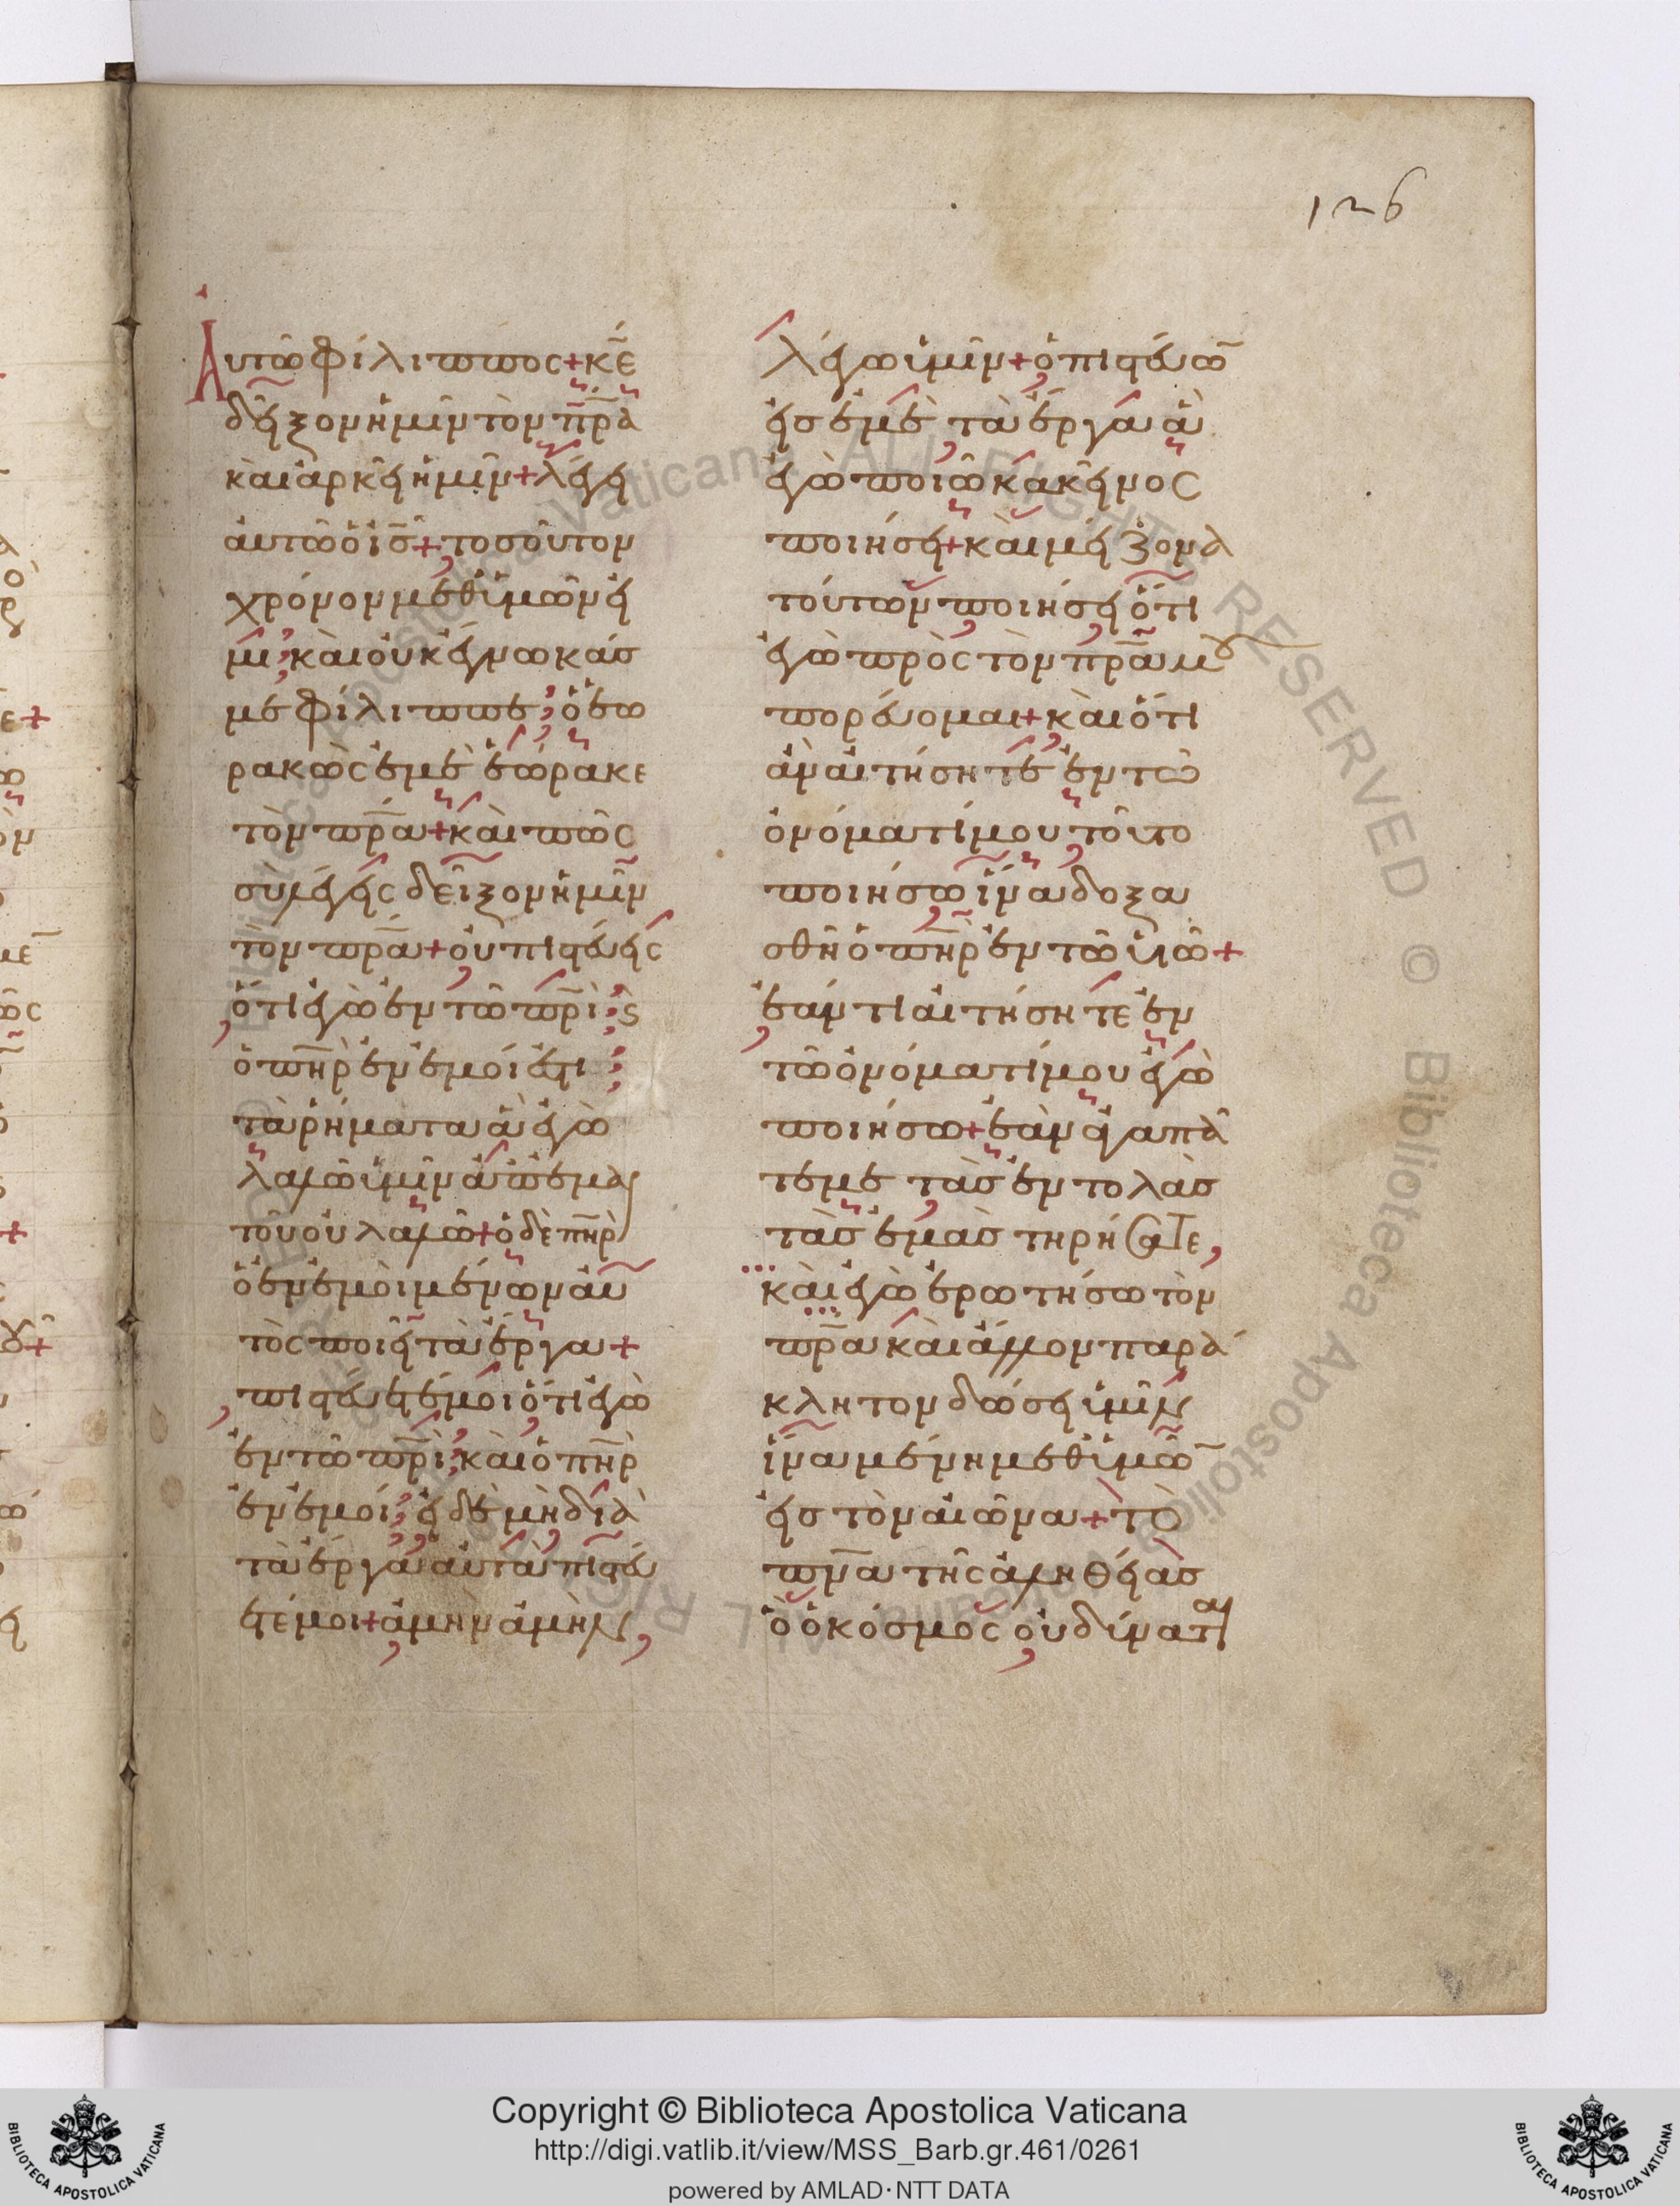 126
Αυτῶ φίλιππος + κ̅ε̅
δεῖξον ἡμῖν τὸν π̅ρ̅α
καὶ ἀρκεῖ ἡμῖν + λέγει
αὐτῶ ὁ ι̅σ̅ + τοσοῦτον
χρόνον μεθ ὑμῶν εἰ
μι; καὶ οὐκ ἔγνωκάσ
με φίλιππε; ὁ ἑω
ρακὼς ἐμὲ ἑώρακε
τὸν π̅ρ̅α + καὶ πῶς
σὺ λέγεις δεῖξον ἡμῖν
τὸν π̅ρ̅α + οὐ πιστεύεις
ὅτι ἐγὼ ἐν τῶ π̅ρ̅ι; ϛ
ὁ π̅η̅ρ ἐν ἐμοί ἐστι;
τὰ ῥήματα ἃ ἐγὼ
λαλῶ ὑμῖν ἀπ ἐμαυ
τοῦ οὐ λαλῶ + ὁ δὲ π̅η̅ρ
ὁ ἐν ἐμοὶ μένων αὐ
τὸς ποιεῖ τὰ ἔργα +
πιστεύετέ μοι ὅτι ἐγὼ
ἐν τῶ π̅ρ̅ι; καὶ ὁ π̅η̅ρ
ἐν ἐμοί; εἰ δὲ μὴ διὰ
τὰ ἔργα αὐτὰ πιστεύ
ετέ μοι + ἀμὴν ἀμὴν,
λέγω ὑμῖν + ὁ πιστεύω̅
εἰσ ἐμὲ τὰ ἔργα ἃ
ἐγὼ ποιῶ κἀκεῖνος
ποιήσει + καὶ μείζονα
τούτων ποιήσει ὅτι
ἐγὼ πρὸς τὸν π̅ρ̅α μου
πορεύομαι + καὶ ὅτι
ἂν αἰτήσητε ἐν τῶ
ὀνόματί μου τοῦτο
ποιήσω ἵνα δοξα
σθῆ ὁ π̅η̅ρ ἐν τῶ υἱῶ +
ἐάν τι αἰτήσητε ἐν
τῶ ὀνόματί μου ἐγὼ
ποιήσω + ἐὰν ἀγαπᾶ
τέ με τὰσ ἐντολὰσ
τὰσ ἐμὰσ τηρήσατε,
καὶ ἐγὼ ἐρωτήσω τὸν
π̅ρ̅α καὶ ἄλλον παρά
κλητον δώσει ὑμῖν
ἵνα μένη μεθ ὑμῶ̅
εἰσ τὸν αἰῶνα + τὸ
π̅ν̅α τῆς ἀληθείασ
ὃ ὁ κόσμος οὐ δύναται
Copyright © Biblioteca Apostolica Vaticana
http://digi.vatlib.it/view/MSS_Barb.gr.461/0261
powered by AMLAD·NTT DATA
BIBLIOTECA APOSTOLICA VATICANA
BIBLIOTECA APOSTOLICA VATICANA